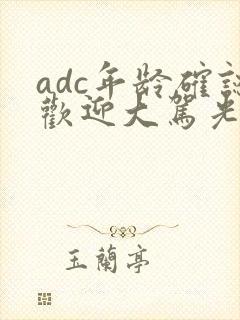 adc年龄確認
歡迎大駕光
玉蘭亭